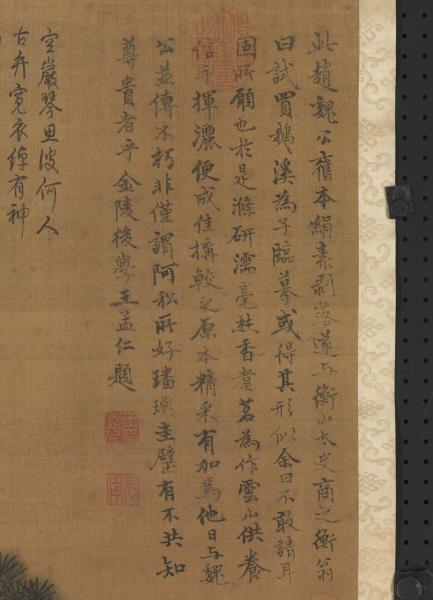 此趙魏公舊本絹素剥落遂与衡山太史商之衡翁
曰試買鵝溪為子臨摹或得其形似余曰不敢請耳
固所願也於是滌研濡毫炷香煮茗為作雲山供養
信手揮灑便成佳搆較之原本精采有加焉他日与魏
公並傳不朽非僅謂阿私所好璠璵圭璧有不共知
尊貴者乎金陵後學王孟仁題
空巖琴思彼何人
古弁寬衣綽有神